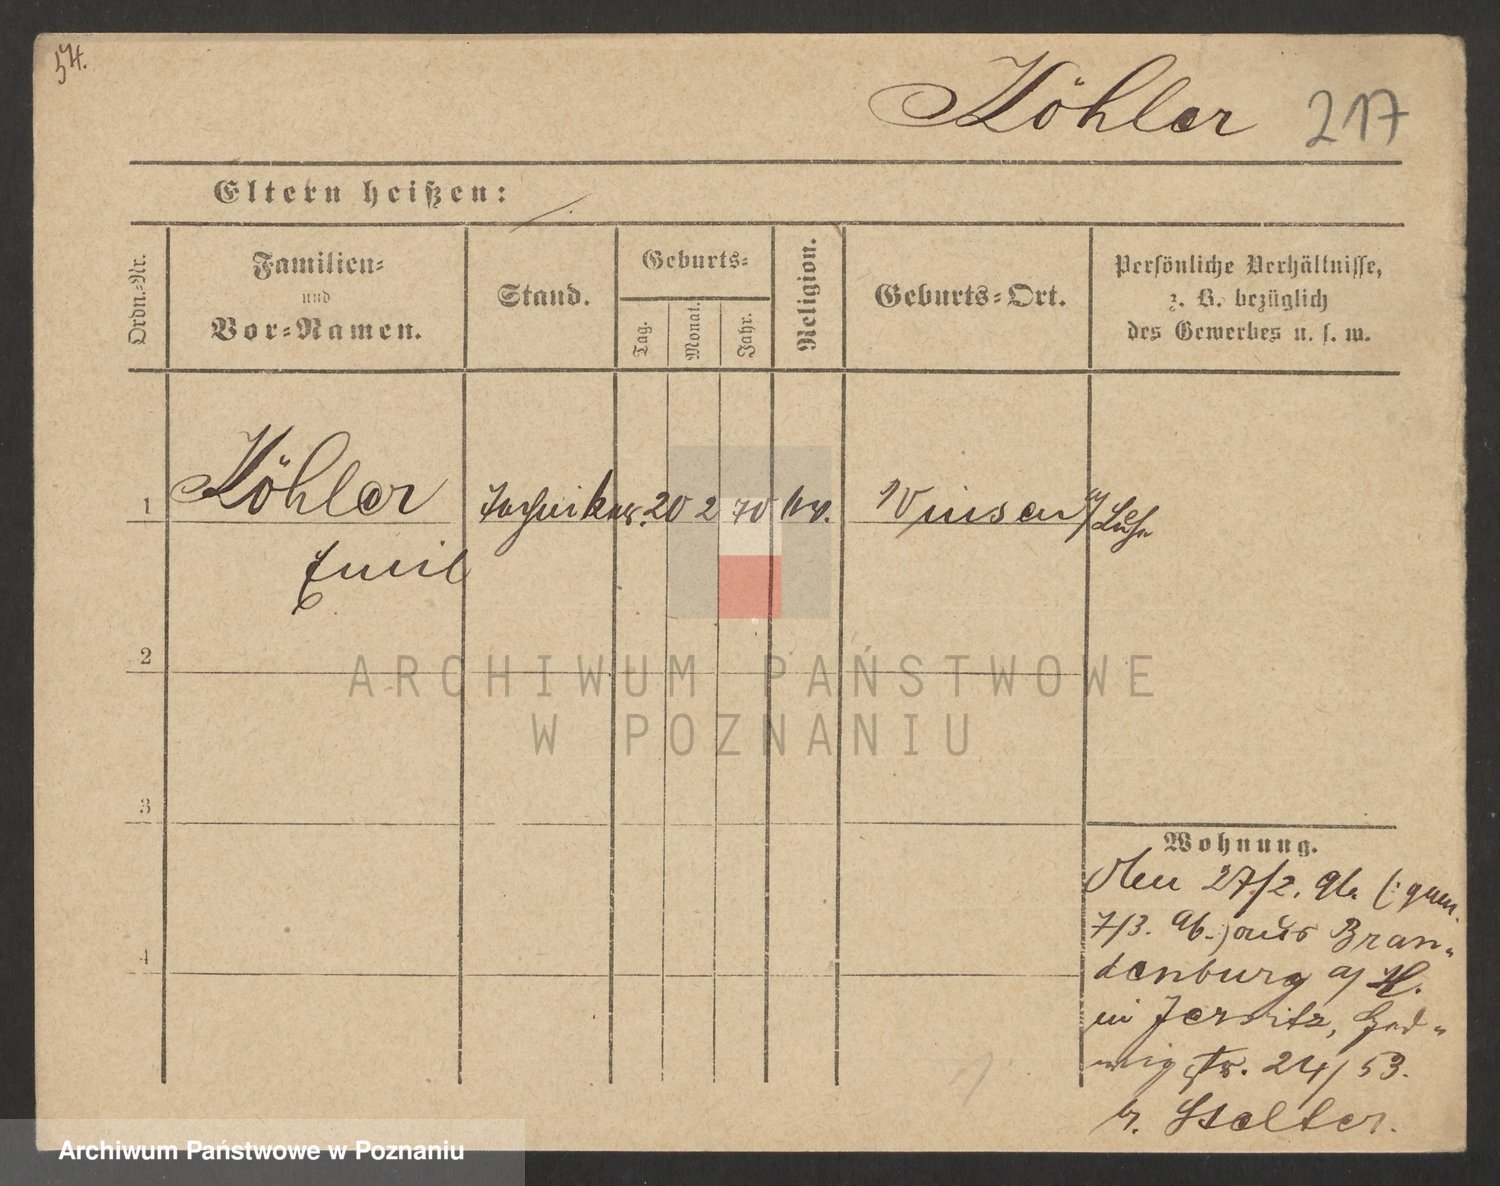 54.
Köhler 217
Eltern heißen:
Ordn.-Nr.
Familien-
und
Vor-Namen.
Stand.
Geburts-
Tag.
Monat.
Jahr.
Religion.
Geburts-Ort.
Persönliche Verhältnisse,
z. B. bezüglich
des Gewerbes u. s. w.
1 Köhler Techniker. 20 2 70 ev. Winsen a/Luhe
Emil
2
ARCHIWUM PAŃSTWOWE
W POZNANIU
3
Wohnung.
Den 27/2. 96. (: gem.
7/3. 96.) aus Bran-
4
denburg a/ H.
in Jersitz, Hed-
wig str. 24/53.
b.
Archiwum Państwowe w Poznaniu